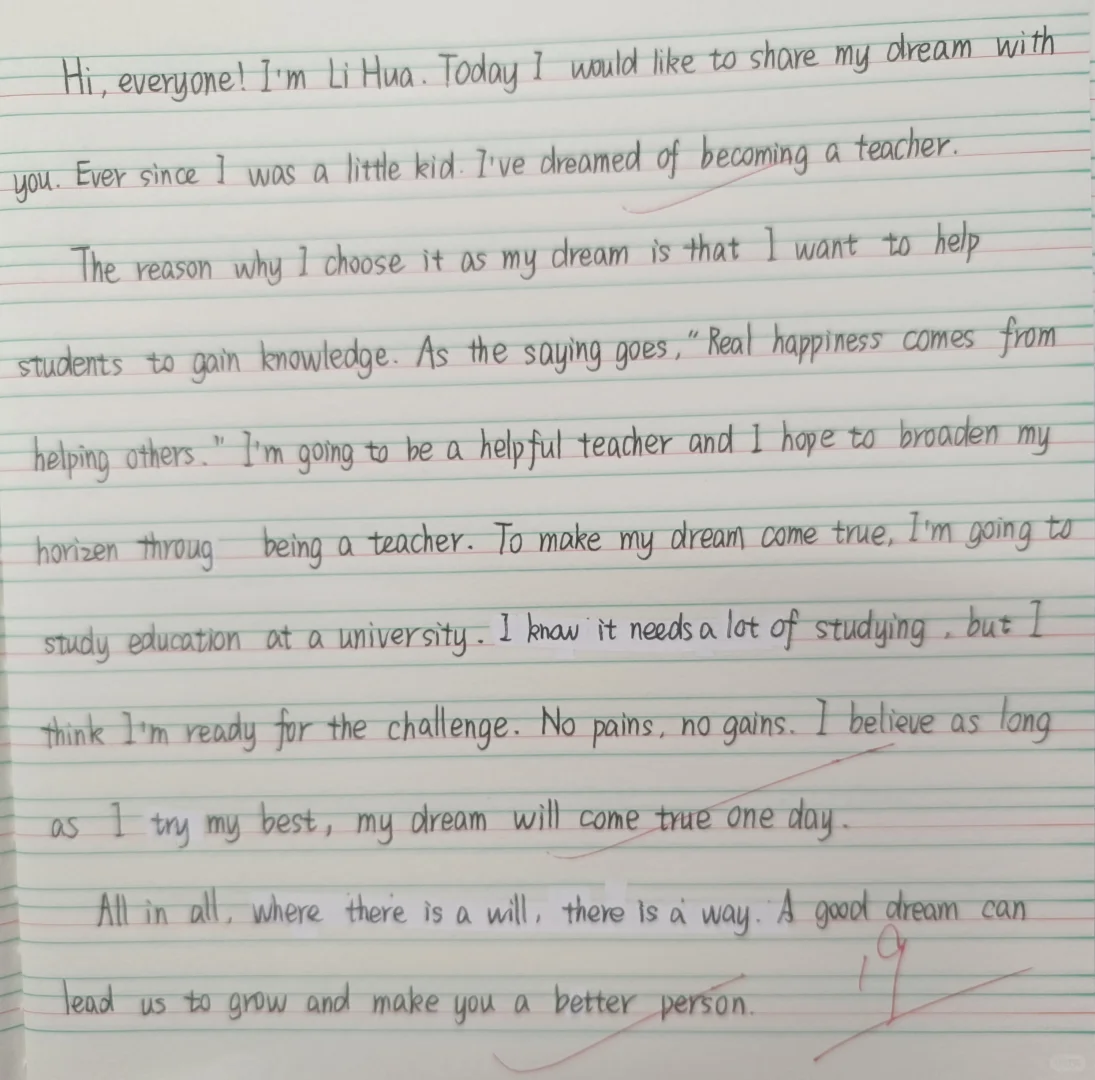 Hi, everyone! I'm Li Hua. Today I would like to share my dream with
you. Ever since I was a little kid. I've dreamed of becoming a teacher.
The reason why I choose it as my dream is that I want to help
students to gain knowledge. As the saying goes, "Real happiness comes from
helping others." I'm going to be a helpful teacher and I hope to broaden my
horizen throug being a teacher. To make my dream come true, I'm going to
study education at a university. I know it needs a lot of studying, but I
think I'm ready for the challenge. No pains, no gains. I believe as long
as I try my best, my dream will come true one day.
All in all, where there is a will, there is a way. A good dream can
lead us to grow and make you a better person.
19